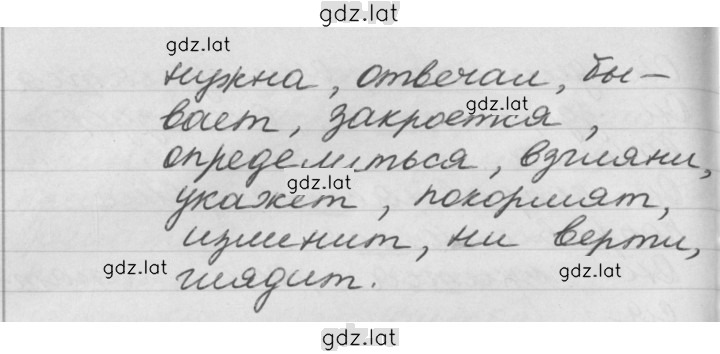 gdz.lat
gdz.lat
нужна, отвечал, бы-
gdz.lat
вает, закроется,
определиться, взгляни,
gdz.lat
укажет, покормят,
изменит, ни верти,
gdz.lat gdz.lat
глядит.
gdz.lat